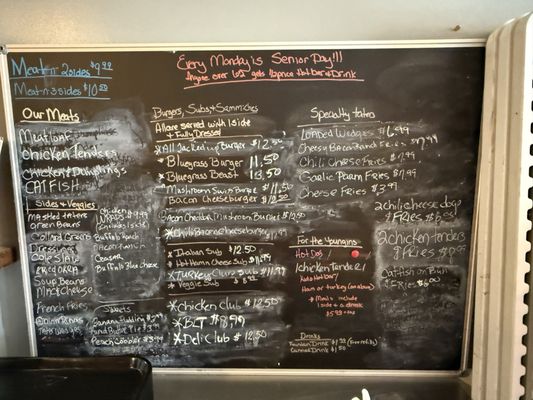 Every Monday is Senior Day!!!
Meat-n-2 sides $9.99
Meat-n-3 sides $10.50
Our Meats
Meatloaf
Chicken Tenders
Chicken & Dumplings
CATFISH
Sides & Veggies
Mashed taters
Green Beans
Collard Greens
Cole Slaw
Fried OKRA
Soup Beans
Mac & Cheese
French Fries
Onion Rings
Chicken
WRAPS $9.99
Buffalo Ranch
Bacon Ranch
Ceasar
Buffalo Blue cheese
Sweets
Banana Pudding
Peach Cobbler $3.99
Burgers, Subs & Sammiches
All are served with 1 side
+ Fully Dressed
*All Jacked Up Burger $12.50
*Bluegrass Burger 11.50
*Bluegrass Beast 13.50
*Mushroom Swiss Burger $11.50
*Bacon Cheeseburger $12.50
Bacon Cheddar Mushroom Burger $12.50
*Chili Bacon Cheeseburger
*Italian Sub $12.50
*Hot Ham & Cheese Sub $11.99
*TURKEY Club Sub $11.99
*Veggie Sub $8.99
*Chicken Club $12.50
*BLT $8.99
*Deli Club $12.50
Specialty taters
Loaded Wedges $6.99
Cheese Bacon Ranch Fries $7.99
Chili Cheese Fries $7.99
Garlic Parm Fries $7.99
Cheese Fries $3.99
2 chili cheese dogs
& FRIES
2 chicken tenders
& FRIES
Catfish on Bun
& FRIES
For the Youngins
Hot Dog
1 chicken Tender
Ham or turkey
*Meals include
1 side & a drink
$5.99
Drinks
Fountain Drink $1.99 (free refills)
Canned Drink $1.50